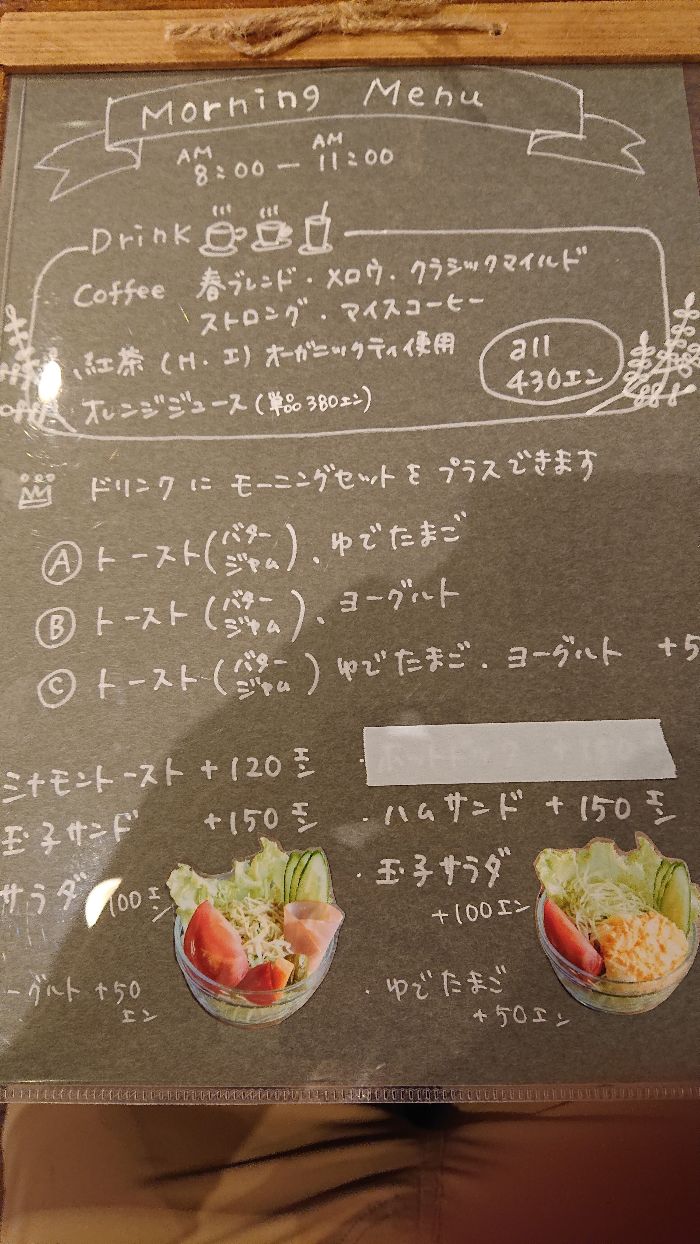 Morning Menu
AM 8:00 — AM 11:00
Drink
Coffee 春ブレンド・メロウ・クラシックマイルド
ストロング・アイスコーヒー
紅茶 (H・I) オーガニックティ使用
オレンジジュース (単品380エン)
all
430エン
ドリンクに モーニングセットを プラスできます
Ⓐ トースト(バター ジャム)、ゆでたまご
Ⓑ トースト(バター ジャム)、ヨーグルト
Ⓒ トースト(バター ジャム) ゆでたまご、ヨーグルト +5
シナモントースト +120エン
玉子サンド +150エン
・ハムサンド +150エン
サラダ 100エン
・玉子サラダ
+100エン
ーグルト +50エン
・ゆでたまご
+50エン